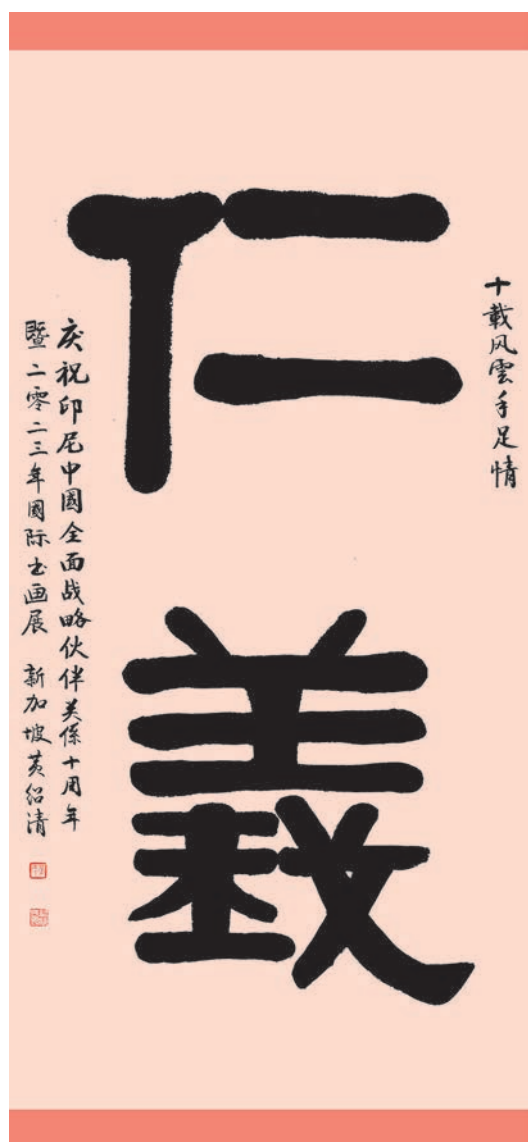 十載风雲手足情
仁義
庆祝印尼中國全面战略伙伴关係十周年
暨二零二三年國际书画展 新加坡黄绍清